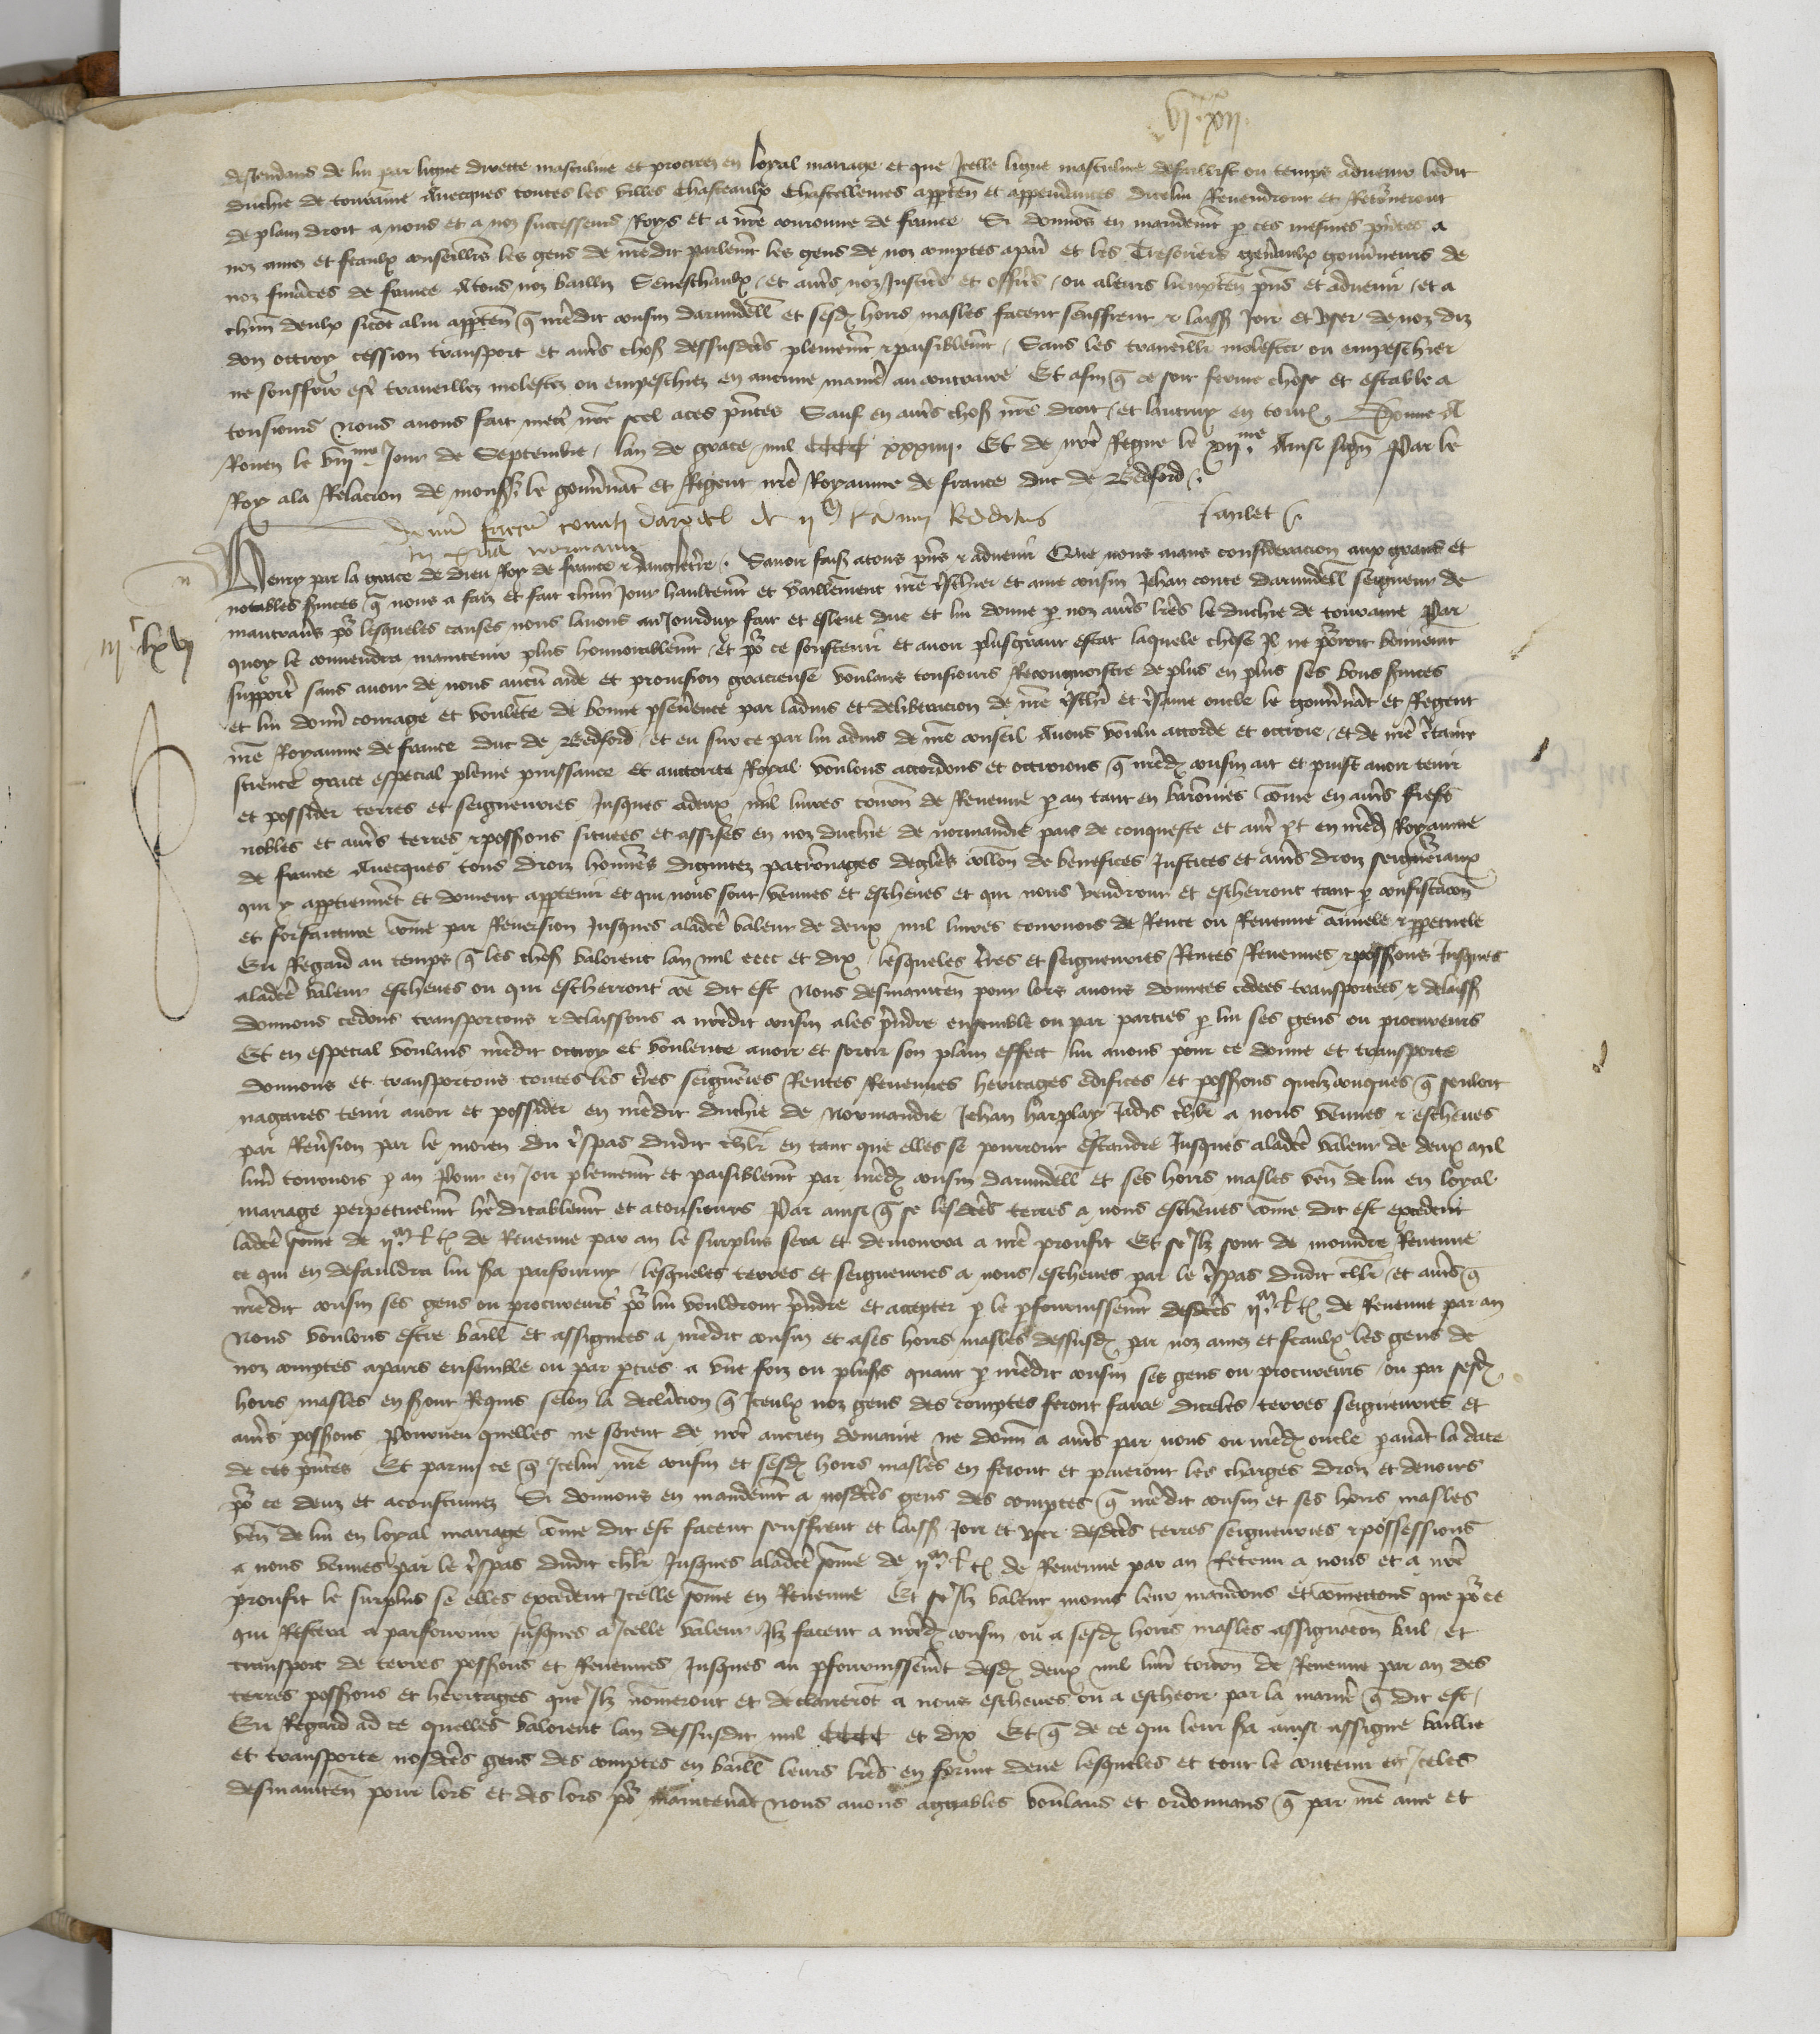 vj xvij
descendans de lui par ligne directe masculine et procreez en loyal mariage et que Icelle ligne masculine defaillist ou temps advenir ledit
duchie de touraine Avecques toutes les villes Chasteaulx Chastellenies apptēn et appendances dicelui Revendront et Retōneront
de plain droit a nous et a noz successeurs Roys et a nrē couronne de france Si donnōs en mandemt p ces mesmes pntes a
noz amez et feaulx conseillrs les gens de nredit parlemt les gens de noz comptes apar et les Tresoriers genaulx gouvneurs de
noz finaces de france Atous noz baillis Seneschaulx et autrs noz Justicrs et officrs ou aleurs lieuxtēn pns et advenir et a
chun deulx sicōe alui apptēn q nredit cousin darundell et sesd hoirs masles facent seuffrent z laiss Joir et user de noz diz
don octroy cession transport et autrs choses dessusdcēs plenemt z paisiblemt Sans les traveillr molester ou empeschier
ne souffrir estre traveillez molestez ou empeschez en aucune manie au contraire Et afin q ce soit ferme chose et estable a
tousiours nous avons fait mectre nrē scel aces pntes Sauf en autrs choses nrē droit et lautruy en toutes Donne A
Rouen le viijme Jour de Septembre lan de grace mil CCCC xxxiiij Et de nrē Regne le xijme Ainsi signe Par le
Roy ala Relacion de monss le gouvnāt et Regent nrē Royaume de france duc de Bedford
Donū factū comiti darōdel de ijm l Annui Redditus
Janlet
in normania
Henry par la grace de dieu Roy de france z dangletrē Savoir faiss atous pns z advenir Que nous aians consideracion aux grans et
notables suices q nous a faiz et fait chun Jour haultemt et vaillamment nrē trschier et ame cousin Jehan conte darundell seigneur de
mautravrs por lesqueles causes nous lavons auJourduy fait et esleve duc et lui donne p noz autrs lrēs le duchie de touraine Par
iijc lxvj
quoy le convendra maintenir plus honnorablemt et por ce soustenir et avoir plusgrant estat laquele chose Il ne porroit bonnemt
supportr sans avoir de nous aucū aide et provision gracieuse voulans tousiours Recongnoistre de plus en plus ses bons suices
et lui donnr courage et voulēte de bonne psevence par ladvis et deliberacion de nrē trschr et trsame oncle le gouvnāt et Regent
nrē Royaume de france duc de Bedford et eu sur ce par lui advis de nrē conseil Avons voulu accorde et octroie et de nrē ctaine
science grace especial pleine puissance et auctorite Royal voulons accordons et octroions q nred cousin ait et puist avoir tenir
et possider terres et seigneuries Jusques adeux mil livres tourn de Revenue p an tant en baronies cōme en autrs fiefs
nobles et autrs terres z possions situees et assises en noz duchie de normandie pais de conqueste et autr pt en nred Royaume
de france Avecques tous droiz honneurs dignitez patronages deglises collon de benefices Justices et autrs droiz seigneuriaux
qui y apptiennent et doivent appteenir et qui nous sont venues et escheues et qui nous vendront et escherront tant p confiscacōn
et forfaicture cōme par Reversion Jusques aladcē valeur de deux mil livres tournois de Rente ou Revenue annuele z ppetuele
Eu Regard au temps q les choses valoient lan mil cccc et dix lesqueles trēs et seigneuries Rentes Revenues z possions Jusques
aladcē valeur escheues ou qui escherront cōe dit est Nous desmaintēn pour lors avons donnees cedees transportees z delaiss
donnons cedons transportons z delaissons a nredit cousin ales prndre ensemble ou par parties p lui ses gens ou procureurs
Et en especial voulans nredit octroy et voulente avoir et sortir son plain effect lui avons pour ce donne et transporte
donnons et transportons toutes les trēs seigneuries Rentes Revenues heritages edifices et possions quelzconques q souloit
nagaires tenir avoir et possider en nredit duchie de Normandie Jehan harplay Jadis chlr a nous venues z escheues
par Revsion par le moien du trspas dudit chlr en tant que elles se pourront estandre Jusques aladcē valeur de deux mil
livr tournois p an Pour en Joir plenemt et paisiblemt par nred cousin darundell et ses hoirs masles vēn de lui en loyal
mariage perpetuelmt hereditablemt et atousiours Par ainsi q se lesdcēs terres a nous escheues cōme dit est excedent
ladcē sōme de ijm l t de Revenue par an le surplus sera et demourra a nrē proufit Et se Ilz sont de moindre Revenue
ce qui en defauldra lui sa parfourny lesqueles terres et seigneuries a nous escheues par le trspas dudit chlr et autrs q
nredit cousin ses gens ou procureurs por lui vouldront prndre et accepter p le pfournissemt desdcēs ijm l t de Revenue par an
Nous voulons estre baill et assignees a nredit cousin et ases hoirs masles dessusd par noz amez et feaulx les gens de
noz comptes aparis ensemble ou par pties a une foiz ou pluss quant p nredit cousin ses gens ou procureurs ou par sesd
hoirs masles en sont Requis selon la declāracion q Iceulx noz gens des comptes feront faire diceles terres seigneuries et
autrs possions Pourveu quelles ne soient de nrē ancien demaine ne donn a autrs par nous ou nred oncle pavāt la date
de ces pntes Et parmi ce q Icelui nrē cousin et sesd hoirs masles en feront et paieront les charges droiz et devoirs
por ce deuz et acoustumez Si donnons en mandemt a nosdcēs gens des comptes q nredit cousin et ses hoirs masles
vēn de lui en loyal mariage cōme dit est facent seuffrent et laiss Joir et user desdcēs terres seigneuries z possessions
a nous venues par le trspas dudit chlr Jusques aladcē sōme de ijm l t de Revenue par an Retenu a nous et a nrē
proufit le surplus se elles excedent Icelle sōme en Revenue Et se Ilz valent moins leur mandons et cōmectons que por ce
qui Restera a parfournir Jusques a Icelle valeur Ilz facent a nred cousin ou a sesd hoirs masles assignacōn bail et
transport de terres possions et Revenues Jusques au pfournissemt desd deux mil livr tourn de Revenue par an des
terres possions et heritages que Ilz nōmeront et declaireront a nous escheues ou a escheoir par la manie q dit est
Eu Regard ad ce quelles valoient lan dessusdit mil CCCC et dix Et q de ce qui leur sa ainsi assigne baillie
et transporte nosdcēs gens des comptes en baill leurs lrēs en forme deue lesqueles et tout le contenu en Iceles
desmaintēn pour lors et des lors por maintenāt Nous avons aggreables voulans et ordonnans q par nrē ame et